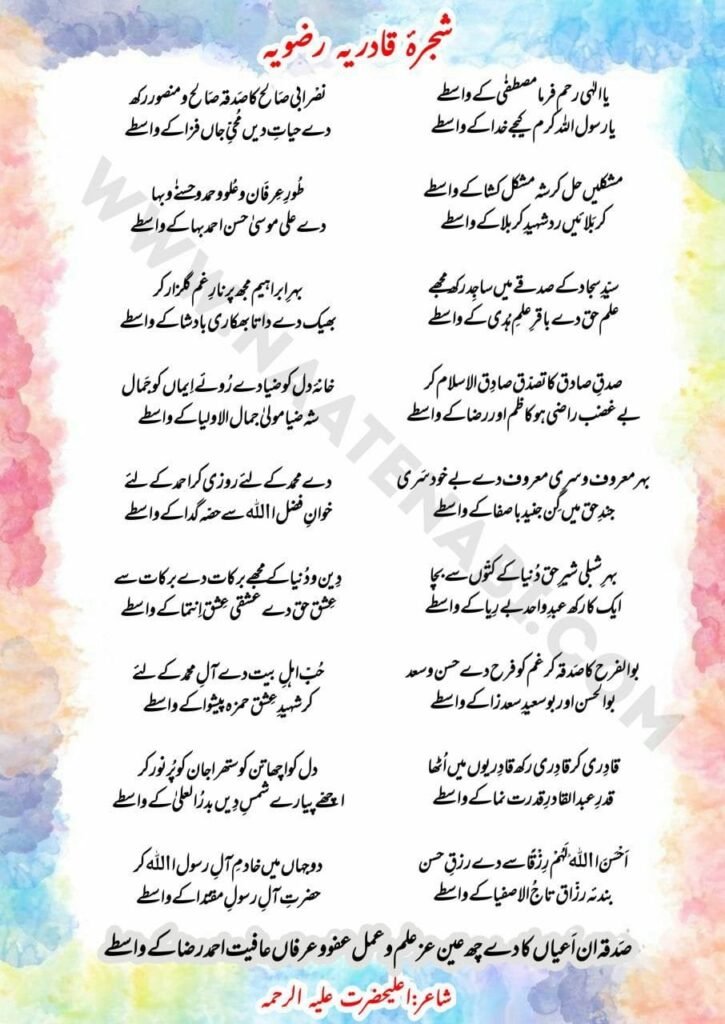 شجرۂ قادریہ رضویہ
یا الٰہی رحم فرما مصطفٰی کے واسطے
یا رسول اللہ کرم کیجے خدا کے واسطے
مشکلیں حل کر شہ مشکل کشا کے واسطے
کر بلائیں رد شہید کربلا کے واسطے
سیّدِ سجاد کے صدقے میں ساجد رکھ مجھے
علم حق دے باقرِ علمِ ہُدیٰ کے واسطے
صدقِ صادق کا تصدّق صادق الاسلام کر
بے غضب راضی ہو کاظم اور رضا کے واسطے
بہرِ معروف و سری معروف دے بے خود سَری
جندِ حق میں گِن جنید باصفا کے واسطے
بہرِ شبلی شیرِ حق دُنیا کے کتّوں سے بچا
ایک کا رکھ عبدِ واحد بے رِیا کے واسطے
بوالفرح کا صَدقہ کر غم کو فرح دے حسن و سعد
بوالحسن اور بو سعید سعد زا کے واسطے
قادِری کر قادِری رکھ قادِریوں میں اُٹھا
قدرِ عبدالقادرِ قدرت نما کے واسطے
اَحْسَنَ اللّٰہُ لَہُمْ رِزْقًا سے دے رزقِ حسن
بندۂ رزّاق تاجُ الاصفیا کے واسطے
نصْرا بی صَالح کا صَدقہ صَالح و منصور رکھ
دے حیاتِ دیں مُحیِّ جاں فزا کے واسطے
طُورِ عِرفَان و عُلو و حمد و حسنےٰ و بہا
دے علی موسیٰ حسن احمد بہا کے واسطے
بہرِ ابراہیم مجھ پر نارِ غم گلزار کر
بھیک دے داتا بھکاری بادشا کے واسطے
خانۂ دل کو ضیا دے رُوئے اِیماں کو جَمال
شہ ضیا مولیٰ جمال الاولیا کے واسطے
دے محمد کے لئے روزی کر احمد کے لئے
خوانِ فضل اللہ سے حصّہ گدا کے واسطے
دِین و دُنیا کے مجھے برکات دے برکات سے
عِشق حق دے عشقی عِشق اِنتما کے واسطے
حُبّ اہلِ بیت دے آلِ محمد کے لئے
کر شہیدِ عِشق حمزہ پیشوا کے واسطے
دل کو اچھا تن کو ستھرا جان کو پُر نور کر
اچھّے پیارے شمسِ دِیں بدرُ العلیٰ کے واسطے
دو جہاں میں خادمِ آلِ رسول اللہ کر
حضرتِ آلِ رسولِ مقتدا کے واسطے
صَدقہ ان اَعیاں کا دے چھ عین عز علم و عمل عفو و عرفاں عافیت احمد رضا کے واسطے
شاعر:اعلیحضرت علیہ الرحمہ
WWW.NAATENABI.COM